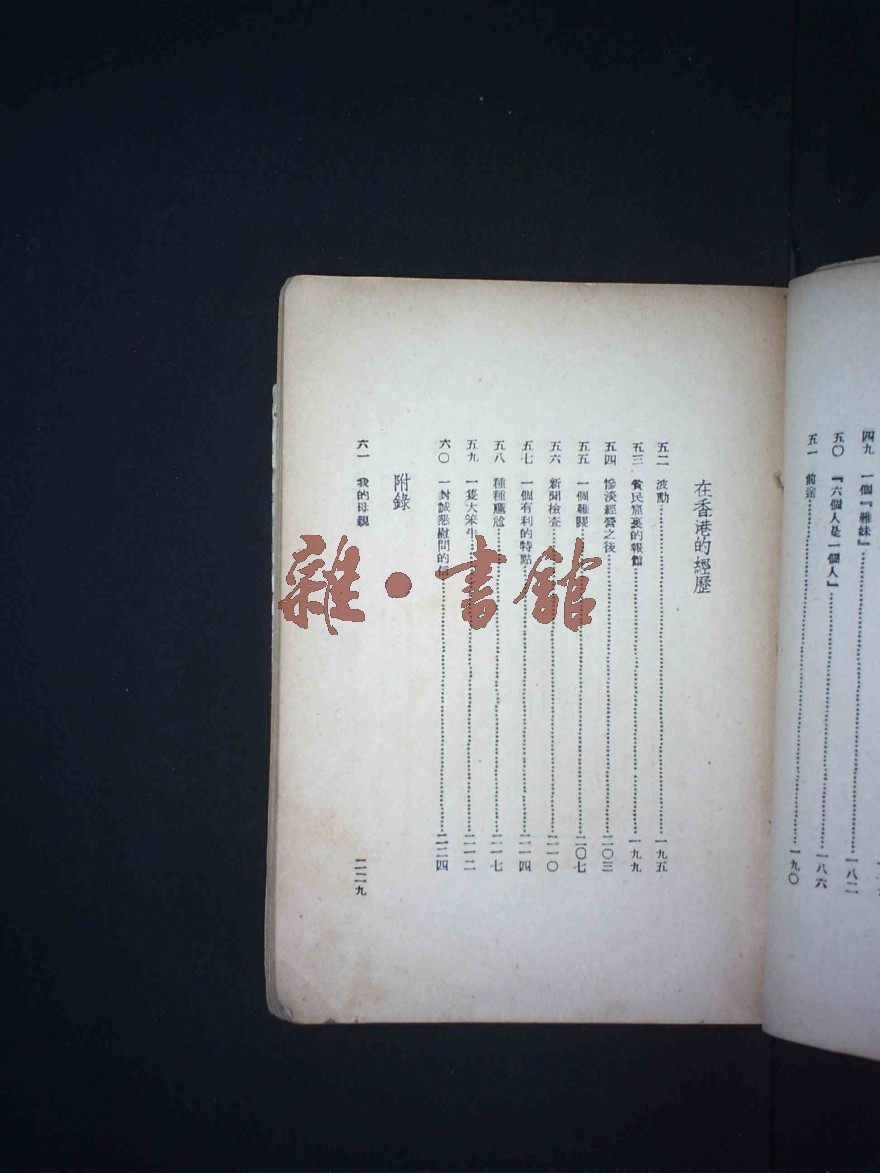 四九 一個『難妹』……一八二
五〇 『六個人是一個人』……一八六
五一 前途……一九〇
在香港的經歷
五二 波動……一九五
五三 貧民窟裏的報館……一九九
五四 慘淡經營之後……二〇三
五五 一個難關……二〇七
五六 新聞檢查……二一〇
五七 一個有利的特點……二一四
五八 種種尷尬……二一七
五九 一隻大笨牛……二二一
六〇 一封誠懇慰問的信……二二四
附錄
六一 我的母親 二二九
雜·書館